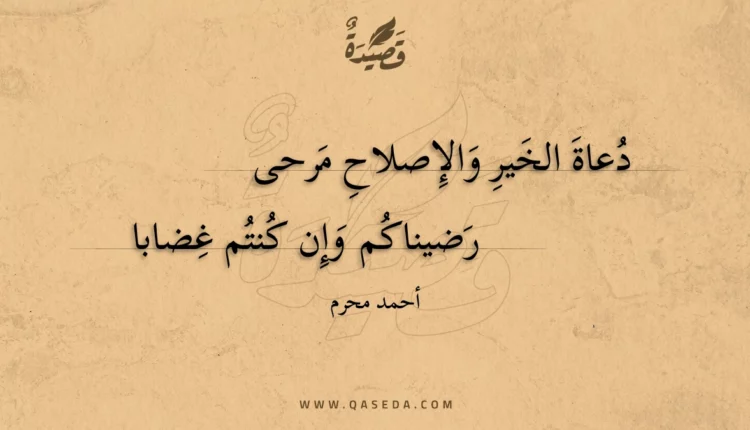 قَصِيْدَةٌ
دُعاةَ الخَيرِ وَالإِصلاحِ مَرحى
رَضيناكُم وَإِن كُنتُم غِضابا
أحمد محرم
WWW.QASEDA.COM